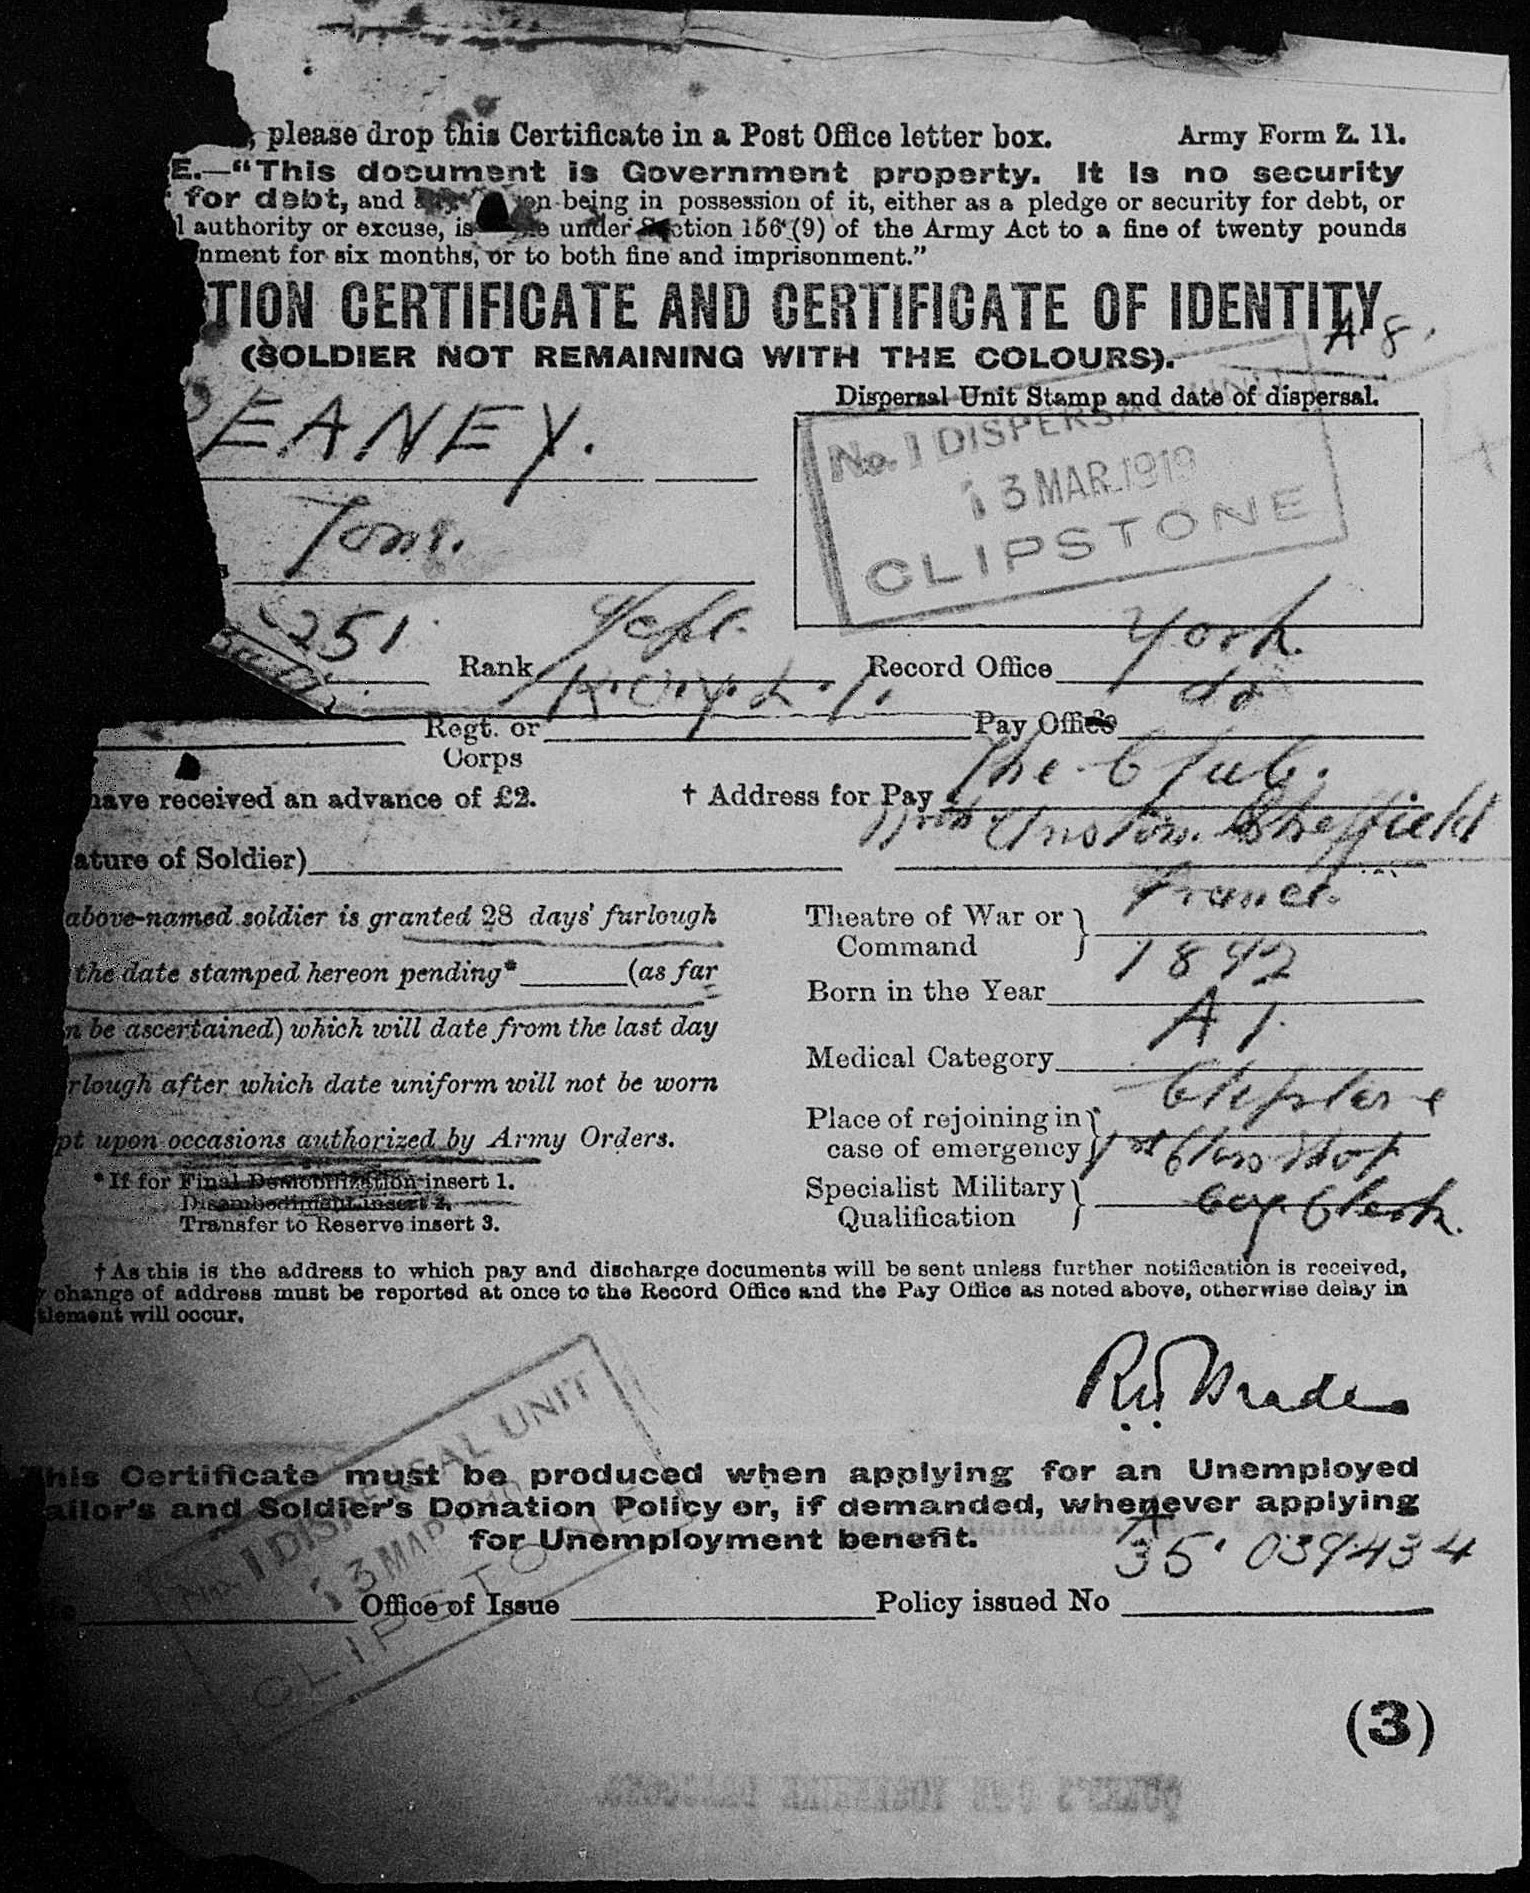 , please drop this Certificate in a Post Office letter box. Army Form Z. 11.
E.—"This document is Government property. It is no security
for debt, and being in possession of it, either as a pledge or security for debt, or
l authority or excuse, is under Section 156 (9) of the Army Act to a fine of twenty pounds
nment for six months, or to both fine and imprisonment."
TION CERTIFICATE AND CERTIFICATE OF IDENTITY
A 8.
(SOLDIER NOT REMAINING WITH THE COLOURS).
Dispersal Unit Stamp and date of dispersal.
EANEY.
No. 1 DISPERSAL UNIT
13 MAR 1919
CLIPSTONE
Tom.
251 Rank Record Office York.
Regt. or Corps K.O.Y.L.I. Pay Office do
have received an advance of £2. † Address for Pay The Club.
Anston. Sheffield
ature of Soldier)
above-named soldier is granted 28 days' furlough
Theatre of War or Command France.
the date stamped hereon pending* (as far
Born in the Year 1892
n be ascertained) which will date from the last day
Medical Category A 1.
rlough after which date uniform will not be worn
Place of rejoining in case of emergency Clipstone
pt upon occasions authorized by Army Orders.
Specialist Military Qualification 1st Class Shot
Coy. Clerk.
*If for Final Demobilization insert 1.
Disembodiment insert 2.
Transfer to Reserve insert 3.
† As this is the address to which pay and discharge documents will be sent unless further notification is received,
y change of address must be reported at once to the Record Office and the Pay Office as noted above, otherwise delay in
tlement will occur.
This Certificate must be produced when applying for an Unemployed
ailor's and Soldier's Donation Policy or, if demanded, whenever applying
for Unemployment benefit.
No. 1 DISPERSAL UNIT
13 MAR
CLIPSTO
Office of Issue Policy issued No A 35. 039434
(3)